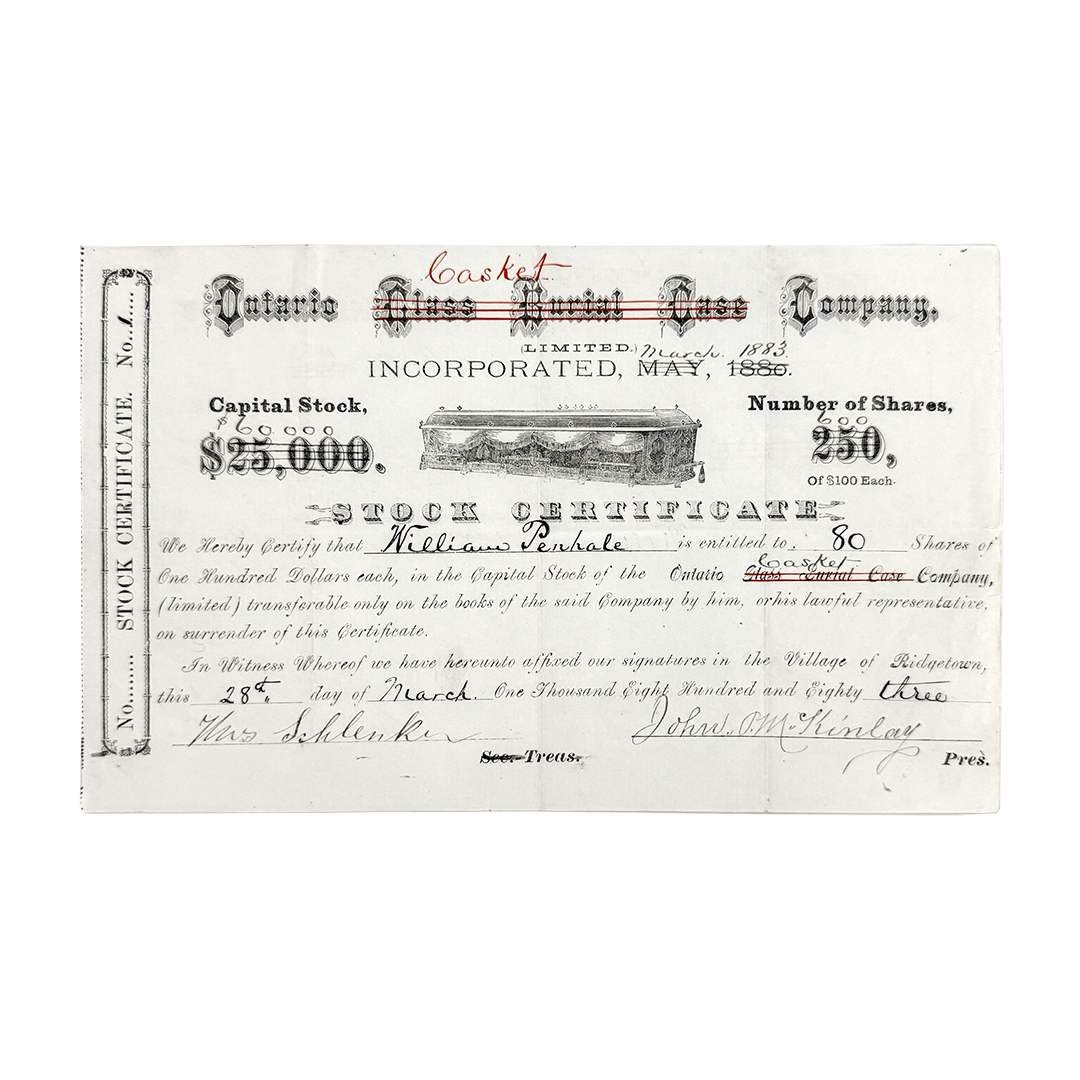 Casket
Ontario Glass Burial Case Company.
(LIMITED.) March. 1883.
INCORPORATED, MAY, 1880.
Capital Stock,
$60000
$25,000.
Number of Shares,
600
250,
Of $100 Each.
STOCK CERTIFICATE
We Hereby Certify that William Penhale is entitled to 80 Shares of
Casket
One Hundred Dollars each, in the Capital Stock of the Ontario Glass Burial Case Company,
(limited) transferable only on the books of the said Company by him, or his lawful representative,
on surrender of this Certificate.
In Witness Whereof we have hereunto affixed our signatures in the Village of Ridgetown,
this 28th day of March. One Thousand Eight Hundred and Eighty three
Schlenker John McKinlay
Sec. Treas. Pres.
No........ STOCK CERTIFICATE. No..1....